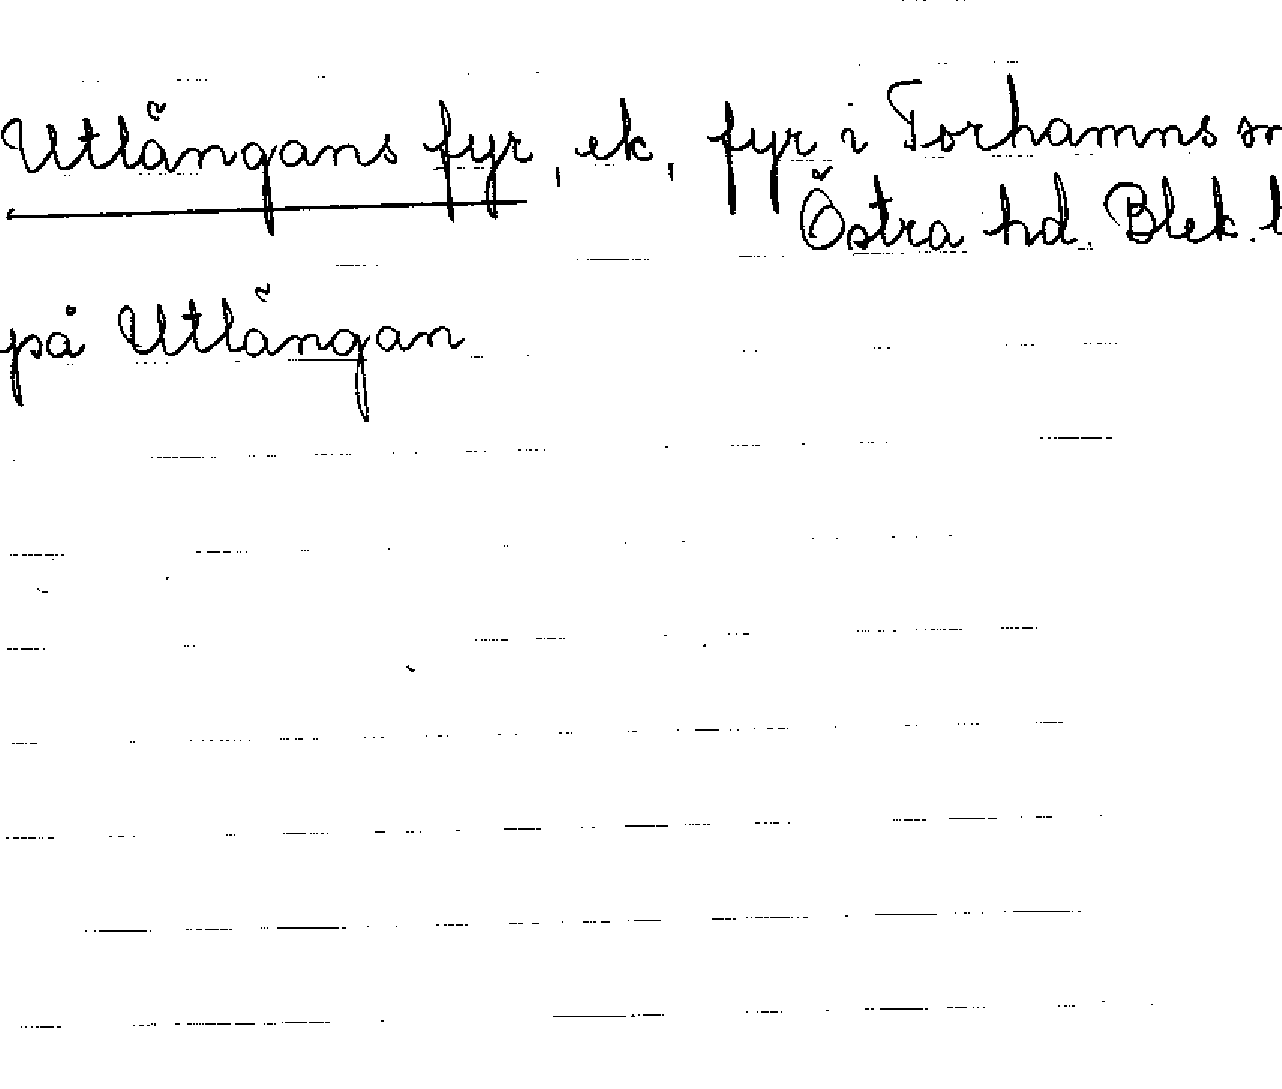 Utlängans fyr, ek, fyr i Torhamns sn
Östra hd. Blek. l
på Utlängan